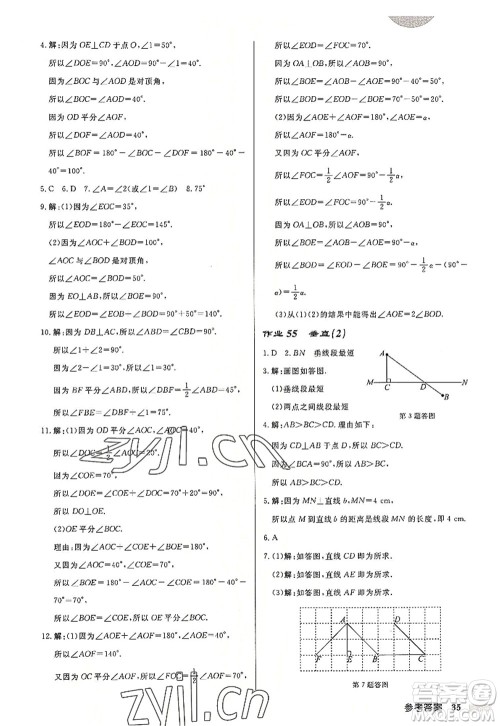 4.解:因为 OE⊥CD 于点 O,∠1=50°,
所以∠DOE=90°,∠AOD=90°-50°=40°.
因为∠BOC 与∠AOD 是对顶角,
所以∠BOC=∠AOD=40°.
因为 OD 平分∠AOF,
所以∠DOF=∠AOD=40°.
所以∠BOF=180°-∠BOC-∠DOF=180°-40°-
40°=100°.
5.C 6.D 7.∠A=∠2(或∠1=∠B) 8.75°
9.解:因为∠EOC=35°,
所以∠EOD=180°-∠EOC=145°.
因为∠AOC+∠BOD=100°,
∠AOC 与∠BOD 是对顶角,
所以∠AOC=∠BOD=50°.
因为 EO⊥AB,所以∠BOE=90°,
所以∠EOD=∠BOD+∠BOE=140°.
10.解:因为 DB⊥AC,所以∠ABD=∠CBD=90°,
所以∠1+∠2=90°.
因为∠1=∠2,所以∠1=∠2=1/2∠DBC=45°,
所以∠FBE=∠DBF+∠2=90°+45°=135°.
11.解:(1)因为 OD 平分∠AOC,∠AOC=40°,
所以∠DOC=1/2∠AOC=20°.
因为∠COE=70°,
所以∠DOE=∠DOC+∠COE=20°+70°=90°,
所以 DO⊥OE.
(2)OE 平分∠BOC.
理由:因为∠AOC+∠COE+∠BOE=180°,
又因为∠AOC=40°,∠COE=70°,
所以∠BOE=180°-∠AOC-∠COE=70°,
所以∠BOE=∠COE,
所以 OE 平分∠BOC.
12.解:(1)因为∠AOE+∠AOF=180°,∠AOE=40°,
所以∠AOF=180°-∠AOE=140°.
又因为 OC 平分∠AOF,所以∠FOC=1/2∠AOF=70°,
所以∠EOD=∠FOC=70°.
因为 OA⊥OB,所以∠AOB=90°,
所以∠BOE=∠AOB-∠AOE=90°-40°=50°,
所以∠BOD=∠EOD-∠BOE=70°-50°=20°.
(2)因为∠AOE+∠AOF=180°,∠AOE=α,
所以∠AOF=180°-α.
又因为 OC 平分∠AOF,
所以∠FOC=1/2∠AOF=90°-1/2α,
所以∠EOD=∠FOC=90°-1/2α.
因为 OA⊥OB,所以∠AOB=90°,
所以∠BOE=∠AOB-∠AOE=90°-α,
所以∠BOD=∠EOD-∠BOE=90°-1/2α-(90°-
α)=1/2α.
(3)从(1)(2)的结果中能看出∠AOE=2∠BOD.
作业 55 垂直(2)
1.D 2.BN 垂线段最短
3.解:画图如答图.
(1)垂线段最短
(2)两点之间线段最短
A
C
D
B
M
N
第 3 题答图
4.解:AB>AC>CD.理由如下:
因为 CD⊥AD,所以 AC>CD.
因为 BC⊥AC,所以 AB>AC,
所以 AB>AC>CD.
5.解:因为 MN⊥直线 b,MN=4 cm,
所以点 M 到直线 b 的距离是线段 MN 的长度,即 4 cm.
6.A
7.(1)解:如答图,直线 CD 即为所求.
(2)解:如答图,直线 AE 即为所求.
(3)解:如答图,直线 AF 即为所求.
A
D
F
E
B
C
第 7 题答图
参考答案 35
zyjl.cn
zyjl.cn